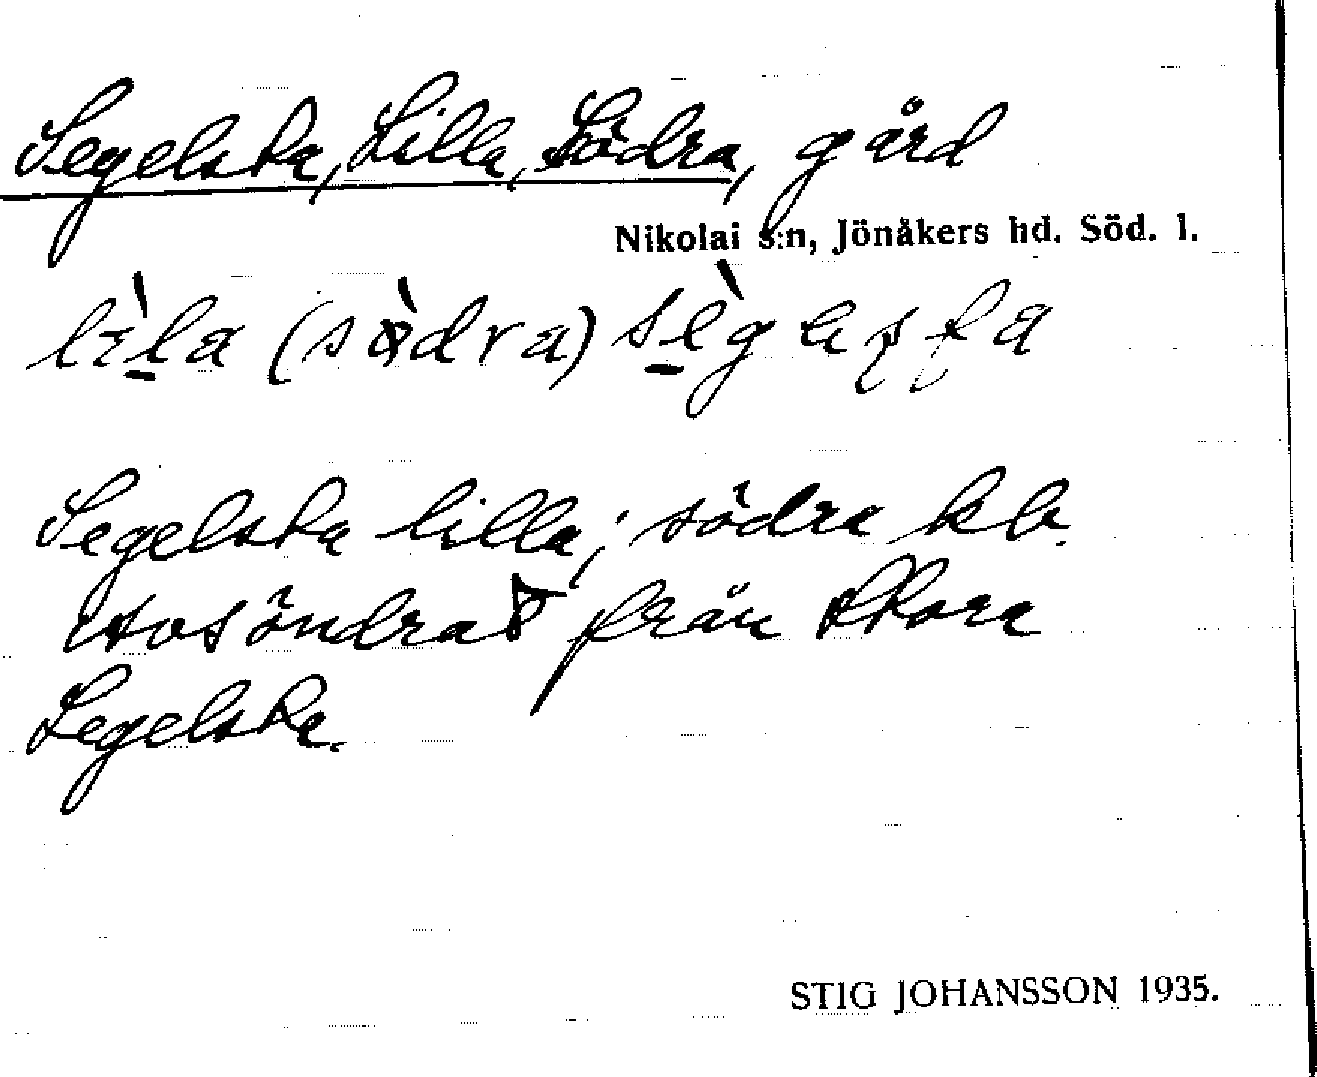 Segelska, Lilla, Södra, gård
Nikolai s:n, Jönåkers hd. Söd. l.
lìla (sòdra)
Segelska lilla; södra kb.
Avsöndrat från Stora
Segelska.
STIG JOHANSSON 1935.